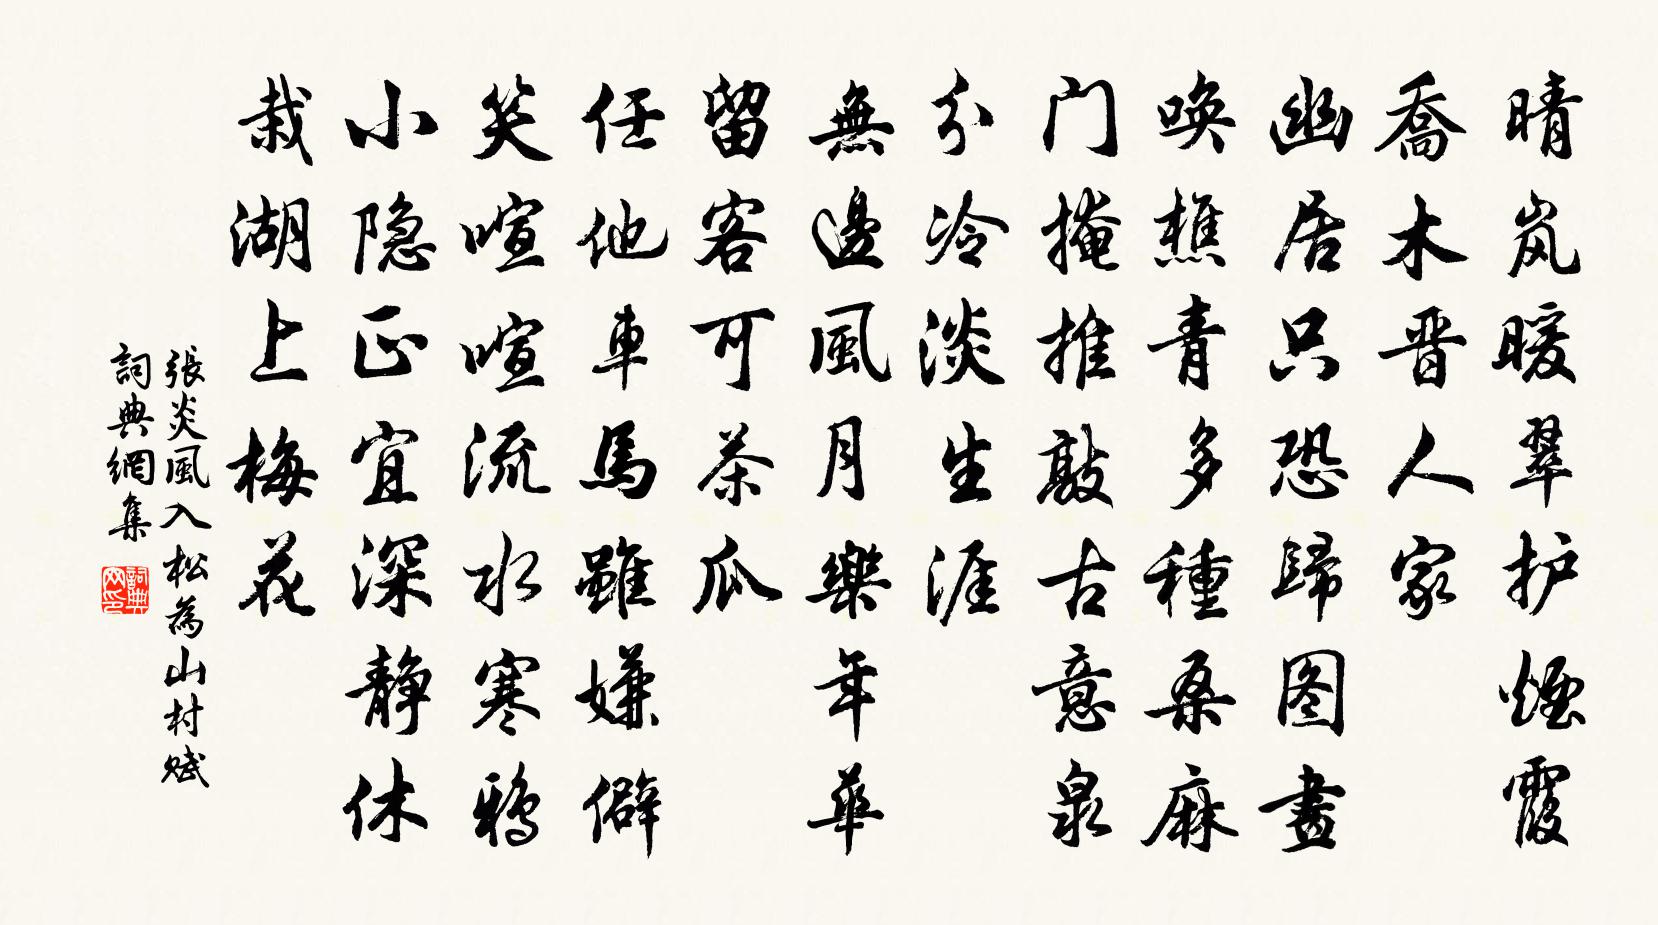 晴岚暖翠护煙霞
喬木晋人家
幽居只恐歸图畫
唤樵青多種桑麻
门掩推敲古意泉
分冷淡生涯
無邊風月樂年華
留客可茶瓜
任他車馬雖嫌僻
笑喧喧流水寒鴉
小隐正宜深静休
栽湖上梅花
張炎風入松為山村赋
詞典網集
詞典网印